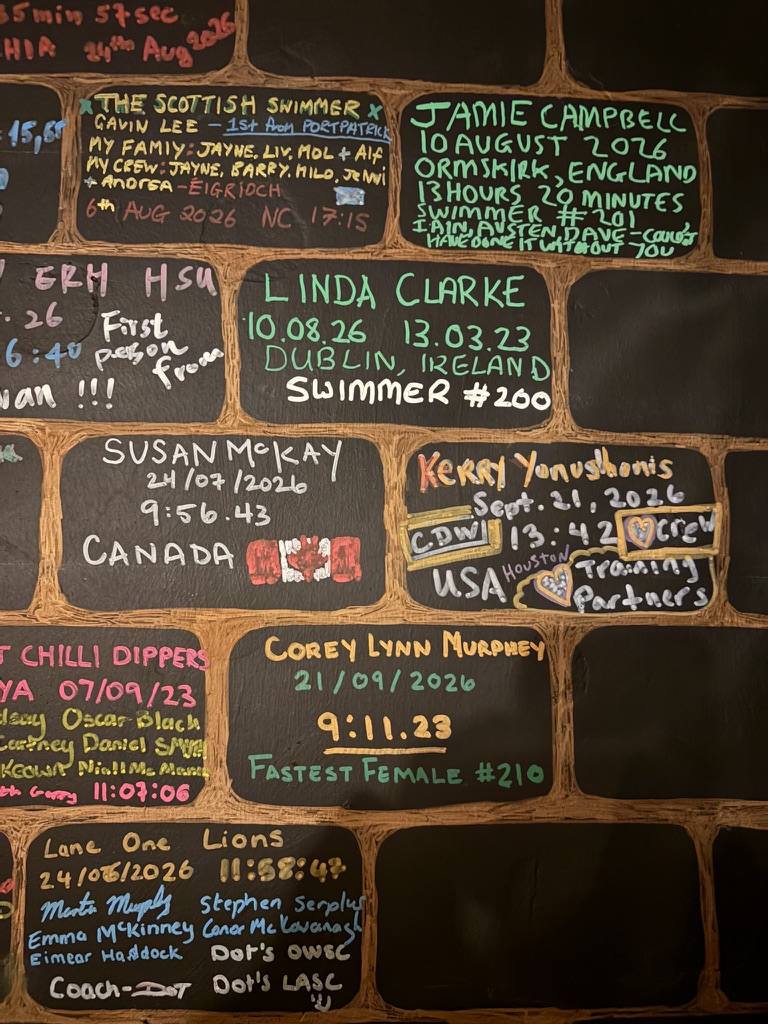 35min 57sec
HIA 24th Aug 2026
:15,
THE SCOTTISH SWIMMER
GAVIN LEE - 1st from PORTPATRICK
MY FAMIY: JAYNE, LIV, MOL + Alf
MY CREW: JAYNE, BARRY, MILO, JENNI
+ ANDREA - EIGRIOCH
6th AUG 2026 NC 17:15
JAMIE CAMPBELL
10 AUGUST 2026
ORMSKIRK, ENGLAND
13 HOURS 20 MINUTES
SWIMMER #201
IAIN, AUSTEN, DAVE - COULDN'T
HAVE DONE IT WITHOUT YOU
ERH HSU
.26
6:40
First
person
from
wan !!!
LINDA CLARKE
10.08.26 13.03.23
DUBLIN, IRELAND
SWIMMER #200
SUSAN McKAY
24/07/2026
9:56.43
CANADA
KERRY Yonushonis
Sept. 21, 2026
CDW 13:42 crew
USA HOUSTON Training
Partners
T CHILLI DIPPERS
YA 07/09/23
Oscar Black
Daniel
KEOWN Niall Mc
11:07:06
COREY LYNN MURPHEY
21/09/2026
9:11.23
FASTEST FEMALE #210
Lane One Lions
24/06/2026 11:58:47
Martin Murphy Stephen Serplus
Emma McKinney Conor McKavanagh
Eimear Haddock Dot's OWSC
Coach - DOT Dot's LASC